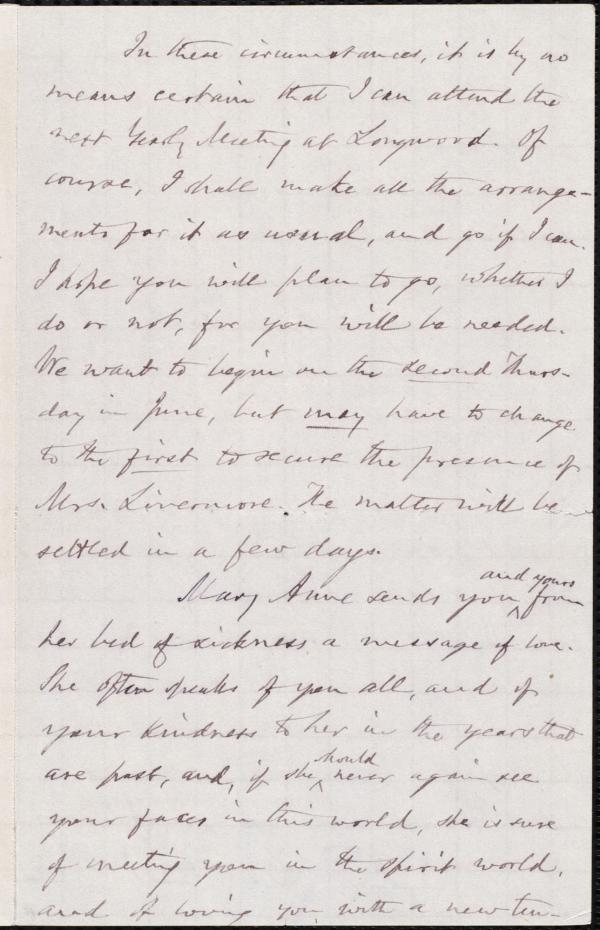 In these circumstances, it is by no
means certain that I can attend the
next Yearly Meeting at Longwood. Of
course, I shall make all the arrange-
ments for it as usual, and go if I can.
I hope you will plan to go, whether I
do or not, for you will be needed.
We want to begin on the second Thurs-
day in June, but may have to change
to the first to secure the presence of
Mrs. Livermore. The matter will be
settled in a few days.
and yours
Mary Anne sends you ^ from
her bed of sickness a message of love.
She often speaks of you all, and of
your kindness to her in the years that
are past, and, if she ^ should never again see
your faces in this world, she is sure
of meeting you in the spirit world,
and of loving you with a new ten-